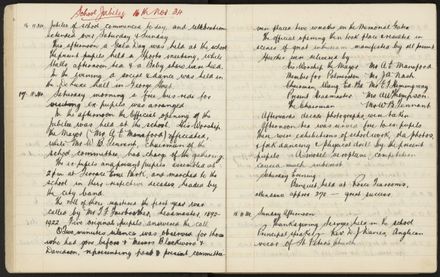 School Jubilee 16th Nov
Jubilee of school commences today, and celebrations
extended over Saturday & Sunday.
This afternoon a Gala Day was held at the school
the present pupils held a Sports meeting, while
stalls, afternoon tea & a Baby show were held.
In the evening a social & dance was held in
the hall in George Street.
Saturday morning a free bus ride for
visiting ex pupils was arranged.
In the afternoon the official opening of the
Jubilee was held at the school. His Worship
the Mayor (Mr A.E. Mansford) officiated,
while Mr W.B. Tennent, Chairman of the
school committee, had charge of the gathering.
The ex pupils and present pupils assembled at
2 pm at George Street Park, and marched to the
school in their respective decades, headed by
the city band.
The roll of those registered the first year was
called by Mr headmaster,
Five original pupils answered the call.
Two minutes silence was observed for those
who has gone before &
Davidson, representing past & present committee
men places two wreaths on the Memorial Gates
The official opening then took place & resulted in
scenes of great enthusiasm manifested by all present
Speeches were delivered by
His Worship the Mayor Mr A.E. Mansford
Member for Palmerston Mr J.A. Nash
Chairman
The Chairman Mr W.B. Tennent
Afterwards decade photographs were taken.
Afternoon tea was served for the ex pupils
then were exhibitions of school work, old photos,
folk dancing & physical drill by the present
pupils. A model aeroplane competition
caused much interest.
Saturday Evening
Banquet held at Rose Gardens,
attendance approx 270 — great success
Sunday afternoon
Thanksgiving Service held in the school
Principal speaker Rev. Anglican
vicar of St Peter's Church